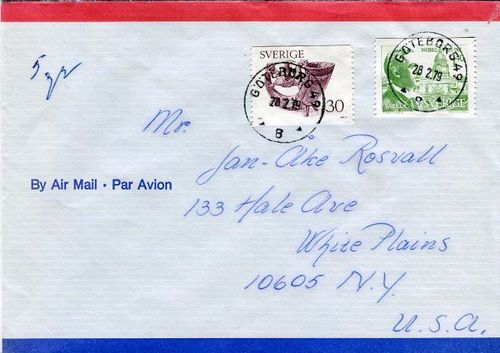 5 gr
SVERIGE
GÖTEBORG 49
28.2.79
8
30
NOBEL
GÖTEBORG 49
28.2.79
8
SVERIGE
Mr.
Jan-Åke Rosvall
By Air Mail · Par Avion
133 Hale Ave
White Plains
10605 N.Y.
U.S.A.